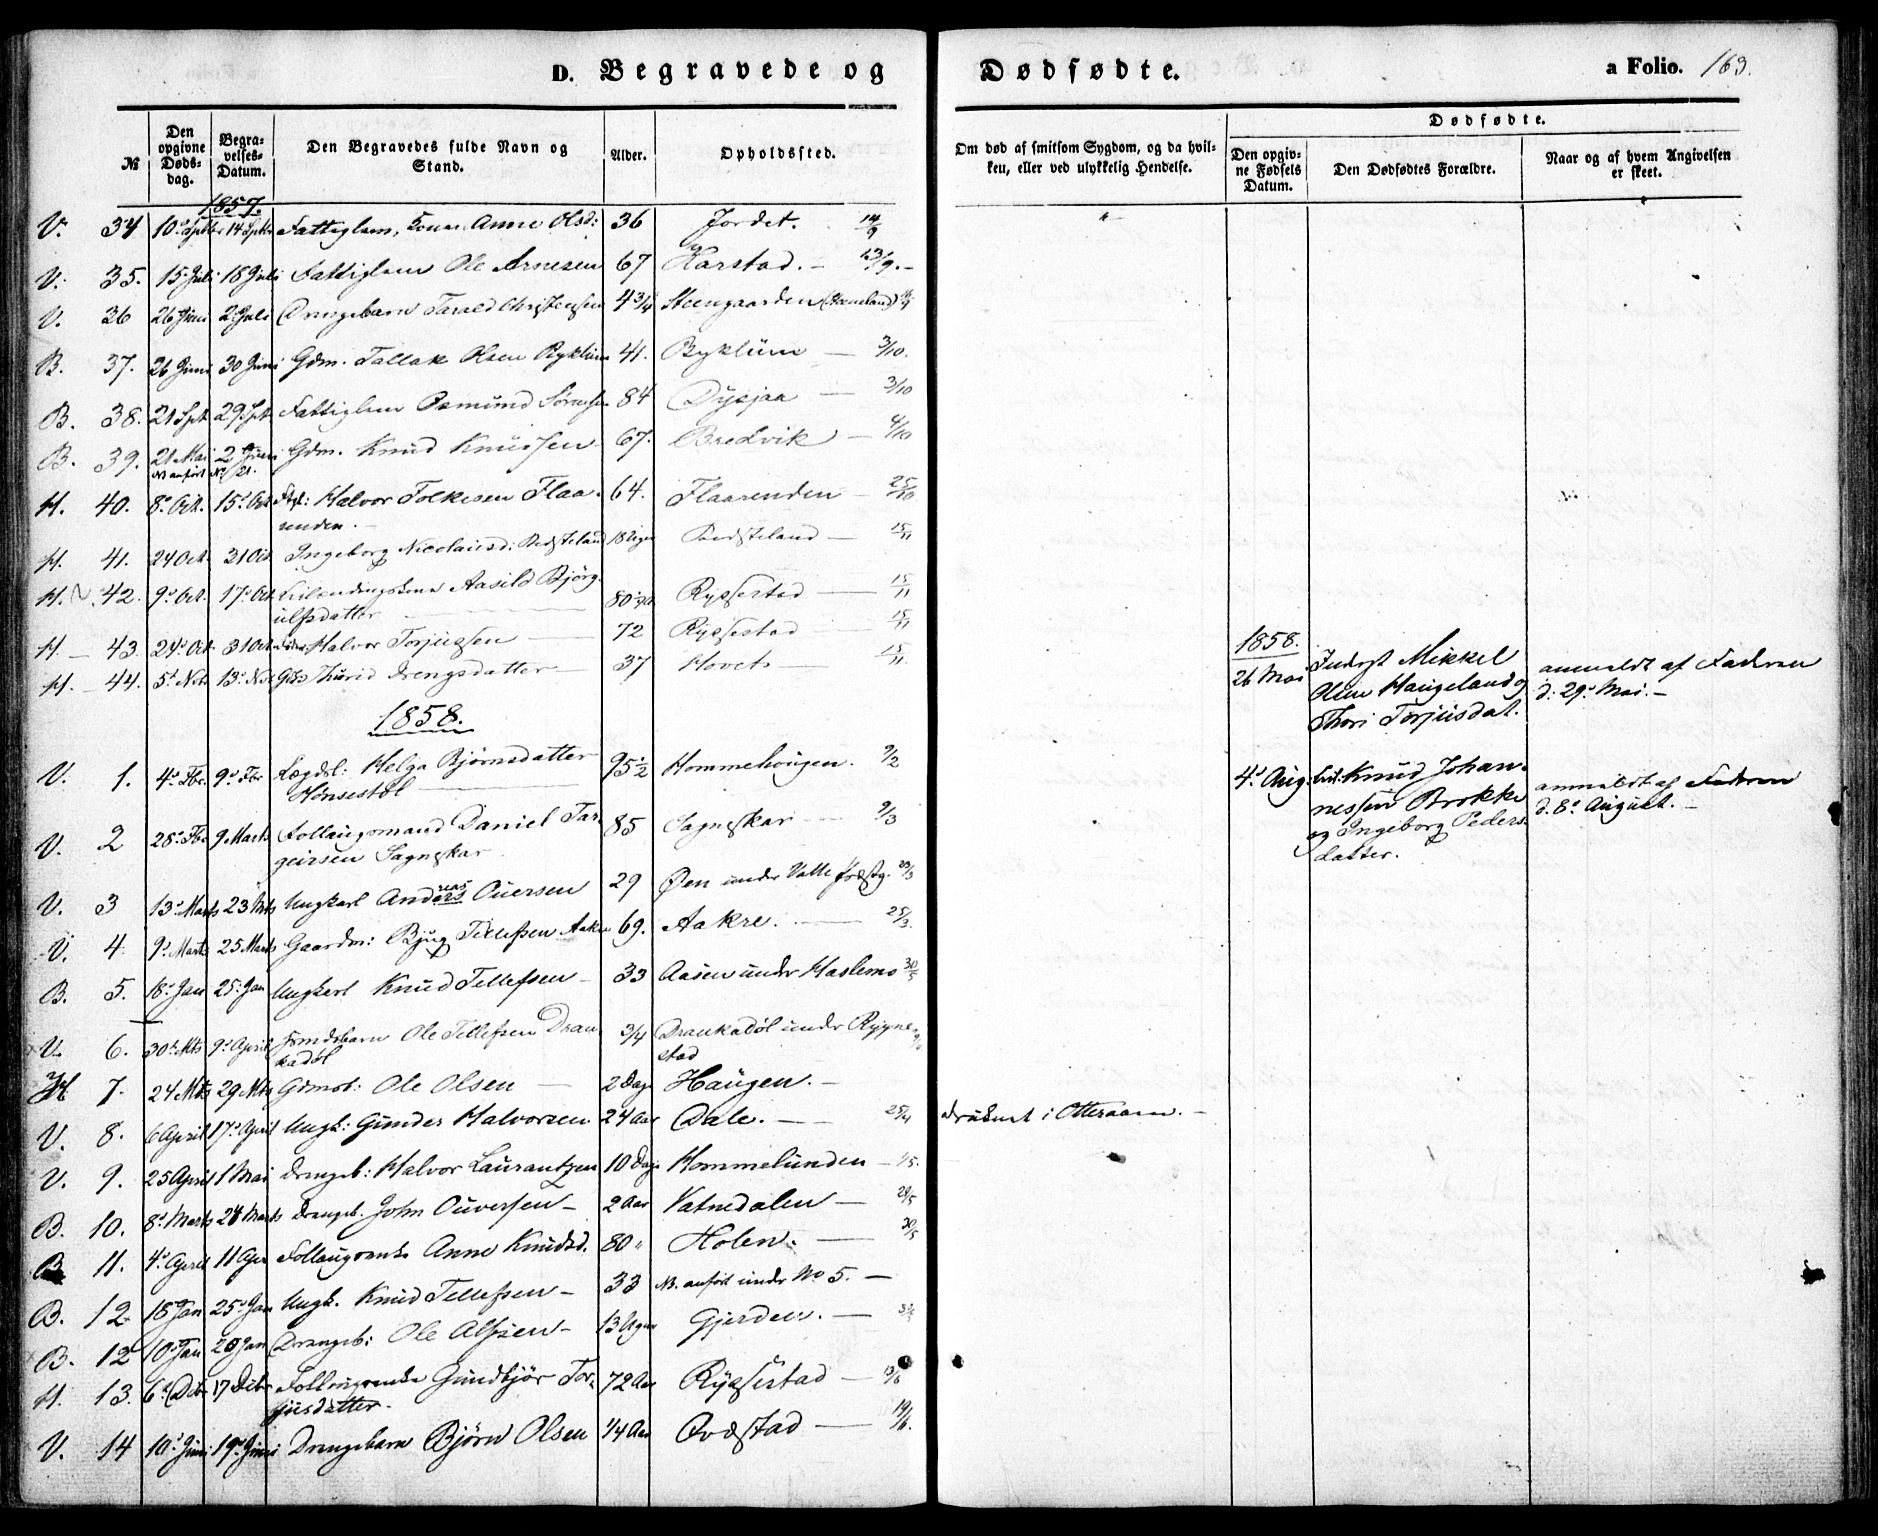 D. Begravede og Dødfødte. a Folio. 163.
№ Den opgivne Døds-dag. Begra-velses-Datum. Den Begravedes fulde Navn og Stand. Alder. Opholdssted. Om død af smitsom Sygdom, og da hvil-ken, eller ved ulykkelig Hendelse. Dødfødte. Den opgiv-ne Fødsels Datum. Den Dødfødtes Forældre. Naar og af hvem Angivelsen er skeet.
1857.
V. 34 10 Septbr 14 Septbr Fattiglem, Anne Olsd: 36 Jordet. 14/9 "
V. 35. 15 Juli 18 Juli Fattiglem Ole Arnesen 67 Harstad. – 13/9. –
V. 36 26 Juni 2 Juli Drengebarn Tarald Christensen 4 3/4 Steengaarden
B. 37. 26 Juni 30 Juni Gdm. Tallak Olsen Byklum 41. Byklum — 3/10.
B. 38. 21 Spt. 29 Spt. Fattiglem Osmund Sørensen 84 Dysjaa — 3/10
B. 39. 21 Mai 2 Juni Gdm. Knud Knudsen 67. Bredvik — 4/10
NB anført No 21.
H. 40. 8 Oct. 15 Oct Halvor Folkesen Flaa- 64. Flaarenden — 25/10
renden. –
H. 41. 24 Oct. 31 Oct. Ingeborg Nicolaiesd: Bedsteland 18 Uger Bedsteland — 15/11
H. 42. 9 Oct. 17 Oct Aasild Bjørg- 80 Ryssestad — 15/11
ulfsdatter
H. – 43. 24 Oct. 31 Oct Halvor Torjussen — 72 Ryssestad 15/11
H. – 44. 5 Nvb 13 Nvb Thurid Drengsdatter — 37 Hovet – 15/11.
1858.
26 Mai Inderst Mikkel
Olsen Haugeland og
Thori Torjusdat.
anmeldt af Faderen
d. 29 Mai. –
1858.
V. 1. 4 Fbr. 9 Fbr Lægdsl: Helga Bjørnsdatter 95 1/2 Hommehougen. 9/2
Hønsestøl
4 Aug. Knud Johan-
nessen Brokke
og Ingeborg Peders-
datter.
anmeldt af Faderen
d. 8 August. –
V. 2 28 Fbr. 9 Marts Follaugsmand Daniel Tar- 85 Sagneskar 9/3
geirsen Sagneskar
V. 3 13 Marts 23 Mts Ungkarl Andreas Ouersen 29 Øen under Valle Præstg. 23/3
V. 4. 9 Marts 25 Marts Gaardm: Bjug Tellefsen Aakre 69. Aakre. — 25/3.
B. 5. 18 Jan 25 Jan Ungkarl Knud Tellefsen – 33 Aasen under Haslemo 30/5
V. 6. 30 Mts 9 April Ole Tellefsen Dran- 3/4 Drankadøl under Rygne-
kadøl stad
H 7. 24 Mts 29 Mts Gdmsb: Ole Olsen — 2 Dage Haugen. –
V. 8. 6 April 17 April Ungk: Gunder Halvorsen 24 Aar Dale. – 25/4 druknet i Otteraaen. –
V. 9. 25 April 1 Mai Drengeb: Halvor Laurantzen 10 Dage Hommelunden – 1/5.
B. 10. 8 Marts 24 Marts Drengeb. John Ouversen – 2 Aar Vatnedalen — 29/5
B. 11. 4 April 11 Apr Follaugsenke Anne Knudsd. 80 " Holen. — 30/5
B. 12 18 Jan 25 Jan Ungk. Knud Tellefsen – 33 NB. anført under No 5. –
B. 12 10 Jan 20 Jan Drengeb: Ole Alfsen – 13 Uger Gjerden. —
H. 13. 6 Debr 17 Debr Follaugsenke Gundbjør Tor- 72 Aar Ryssestad — 13/6
jusdatter.
V. 14 10 Juni 19 Juni Drengebarn Bjørn Olsen 1/4 Aar Qvæstad — 19/6.